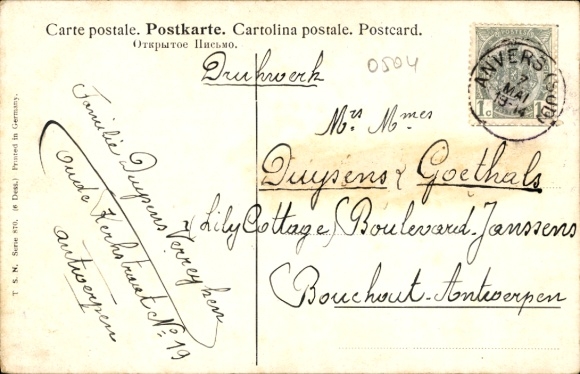 Carte postale. Postkarte. Cartolina postale. Postcard.
Открытое Письмо.
0504
ANVERS (SUD)
7
MAI
13-14
1c 1c
Drukwerk
Mrs Mmes
Duysens & Goethals
"Lily Cottage" Boulevard-Janssens
Bouchout-Antwerpen
Familie Duysens Verreyken
Oude Kerkstraat No 19
Antwerpen
T. S. N. Serie 870. (6 Dess.) Printed in Germany.